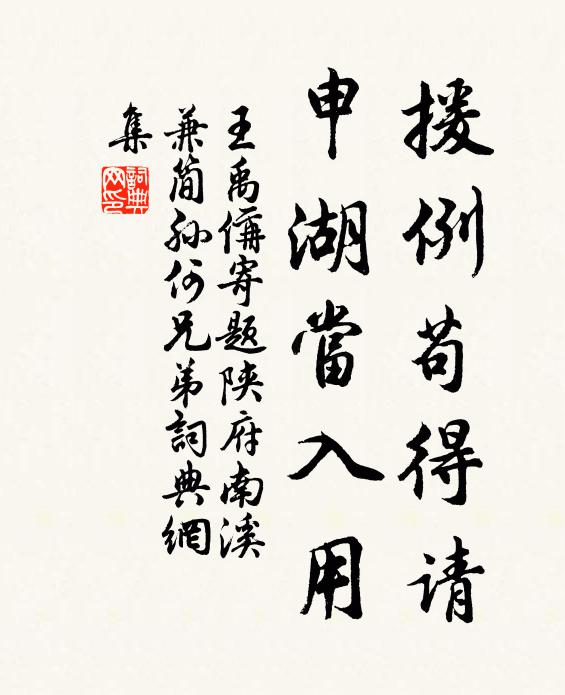 援例苟得请
申湖當入用
王禹偁寄题陕府南溪
兼简孙何兄弟詞典網
集
詞典网印